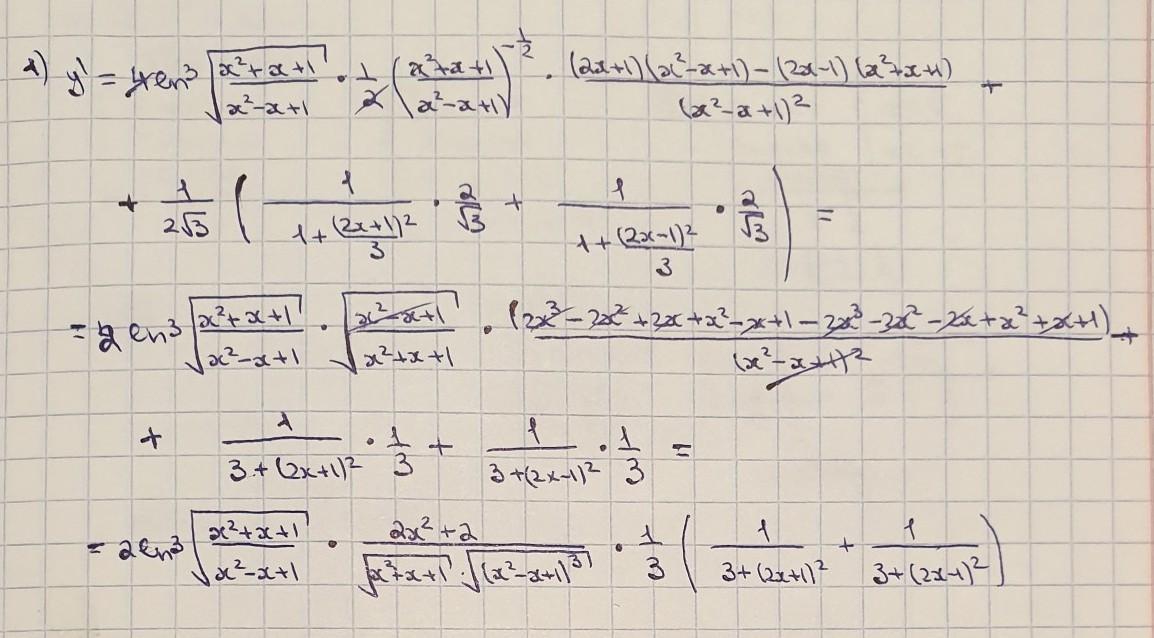 1) y' = 4 ln³ √((x²+x+1)/(x²-x+1)) · 1/2 ((x²+x+1)/(x²-x+1))^(-1/2) · ((2x+1)(x²-x+1) - (2x-1)(x²+x+1))/((x²-x+1)²) +
+ 1/(2√3) (1/(1+(2x+1)²/3) · 2/√3 + 1/(1+(2x-1)²/3) · 2/√3) =
= 2 ln³ √((x²+x+1)/(x²-x+1)) · √((x²-x+1)/(x²+x+1)) · (2x³ - 2x² + 2x + x² - x + 1 - 2x³ - 2x² - 2x + x² + x + 1)/((x²-x+1)²) +
+ 1/(3+(2x+1)²) · 1/3 + 1/(3+(2x-1)²) · 1/3 =
= 2 ln³ √((x²+x+1)/(x²-x+1)) · (2x²+2)/(√(x²+x+1) · √((x²-x+1)³)) · 1/3 (1/(3+(2x+1)²) + 1/(3+(2x-1)²))